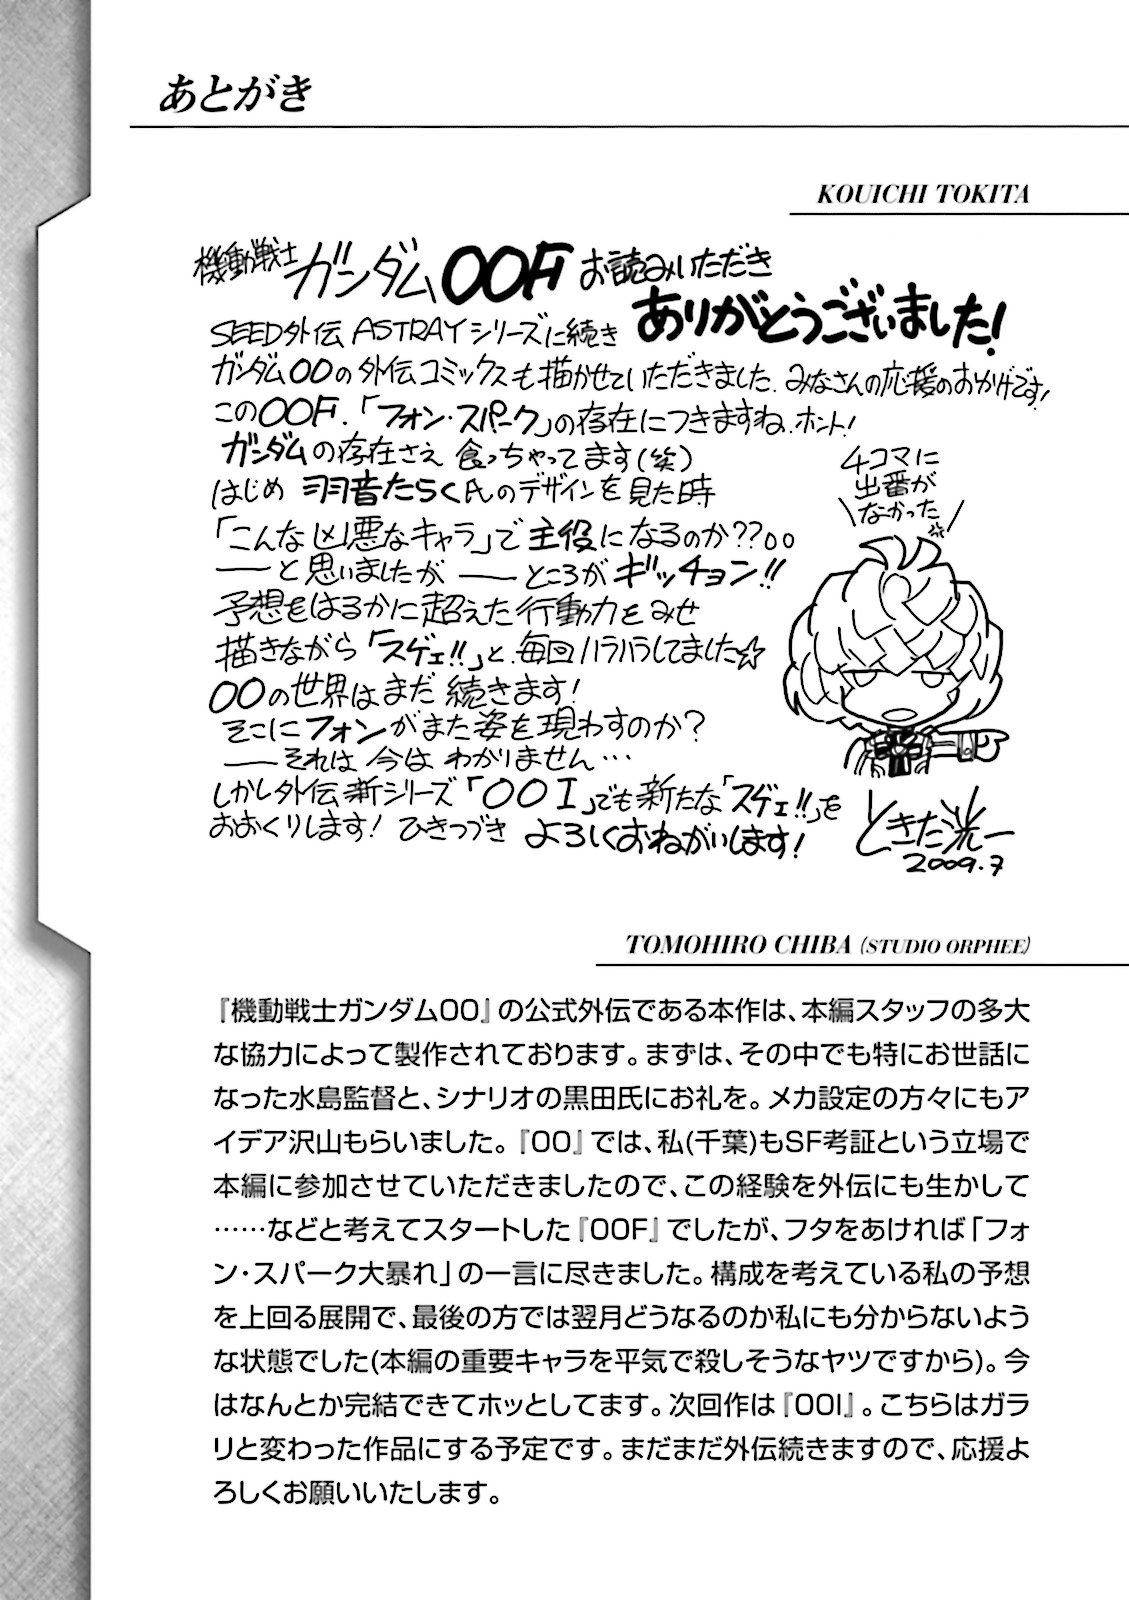 あとがき
KOUICHI TOKITA
機動戦士ガンダム00F お読みいただき
ありがとうございました!
SEED外伝 ASTRAYシリーズに続き
ガンダム00の外伝コミックスも描かせていただきました。みなさんの応援のおかげです!
この00F.「フォン・スパーク」の存在につきますね.ホント!
ガンダムの存在さえ 食っちゃってます(笑)
はじめ 羽音たらく氏のデザインを見た時
「こんな凶悪なキャラ」で主役になるのか??。。
――と思いましたが――ところがギッチョン!!
予想をはるかに超えた行動力をみせ
描きながら「スゲェ!!」と、毎回ハラハラしてました☆
00の世界はまだ 続きます!
そこにフォンがまた姿を現わすのか?
――それは 今は わかりません…
しかし外伝新シリーズ「00I」でも新たな「スゲェ!!」を
おおくりします! ひきつづき よろしくおねがいします!
4コマに
出番が
なかった
ときた洸一
2009.7
TOMOHIRO CHIBA (STUDIO ORPHEE)
『機動戦士ガンダム00』の公式外伝である本作は、本編スタッフの多大
な協力によって製作されております。まずは、その中でも特にお世話に
なった水島監督と、シナリオの黒田氏にお礼を。メカ設定の方々にもア
イデア沢山もらいました。『00』では、私(千葉)もSF考証という立場で
本編に参加させていただきましたので、この経験を外伝にも生かして
……などと考えてスタートした『00F』でしたが、フタをあければ「フォ
ン・スパーク大暴れ」の一言に尽きました。構成を考えている私の予想
を上回る展開で、最後の方では翌月どうなるのか私にも分からないよう
な状態でした(本編の重要キャラを平気で殺しそうなヤツですから)。今
はなんとか完結できてホッとしてます。次回作は『00I』。こちらはガラ
リと変わった作品にする予定です。まだまだ外伝続きますので、応援よ
ろしくお願いいたします。